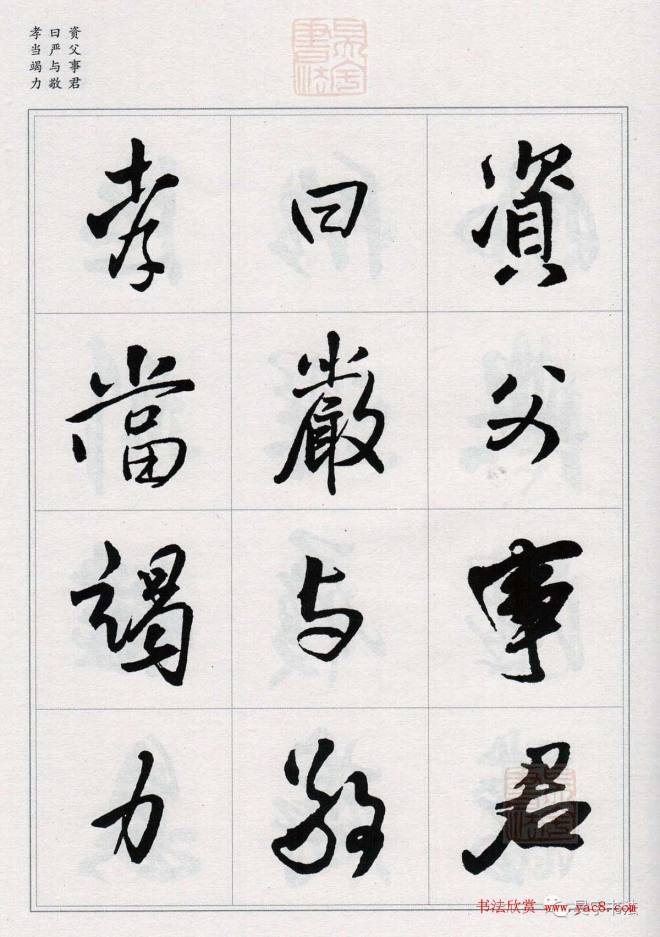 資父事君
曰严与敬
孝当竭力
資父事君
曰嚴与敬
孝當竭力
书法欣赏 www.yac8.com